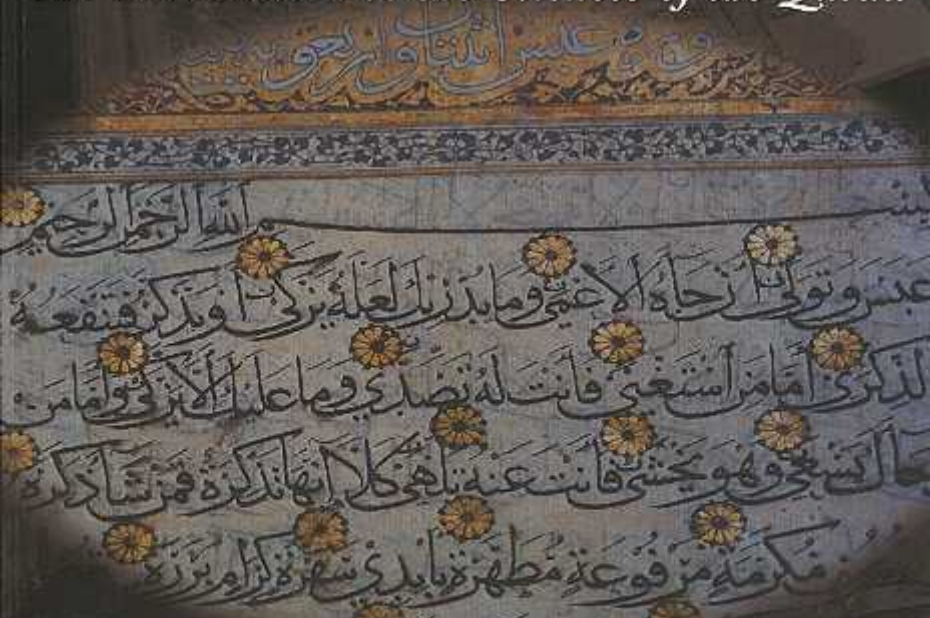 of the Quran
سورة عبس اثنان واربعون
بسم الله الرحمن الرحيم
عبس وتولى ان جاءه الاعمى وما يدريك لعله يزكى او يذكر فتنفعه
الذكرى اما من استغنى فانت له تصدى وما عليك الا يزكى واما من
جاءك يسعى وهو يخشى فانت عنه تلهى كلا انها تذكرة فمن شاء ذكره
مكرمة مرفوعة مطهرة بايدي سفرة كرام بررة